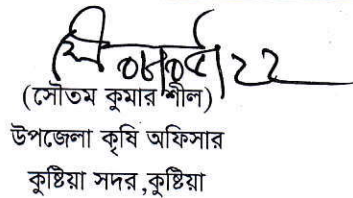 ০৪/০৮/২২
(সৌতম কুমার শীল)
উপজেলা কৃষি অফিসার
কুষ্টিয়া সদর ,কুষ্টিয়া